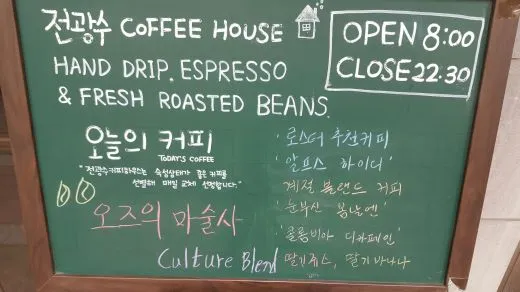 전광수 COFFEE HOUSE
HAND DRIP. ESPRESSO
& FRESH ROASTED BEANS.
OPEN 8:00
CLOSE 22:30
오늘의 커피
TODAY'S COFFEE
"전광수커피하우스는 숙성상태가 좋은 커피를
선별해 매일 교체 선정합니다."
오즈의 마술사
Culture Blend
'로스터 추천커피
'알프스 하이디'
계절 블랜드 커피
'눈부신 봄날엔'
'콜롬비아 디카페인'
딸기쥬스, 딸기바나나